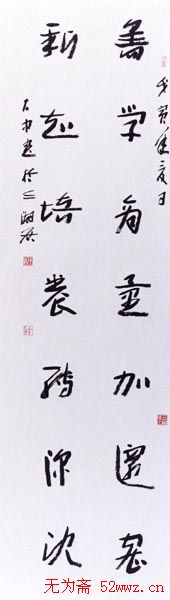 舊学商量加邃密
新知培養轉深沈
无为斋 52wwz.cn